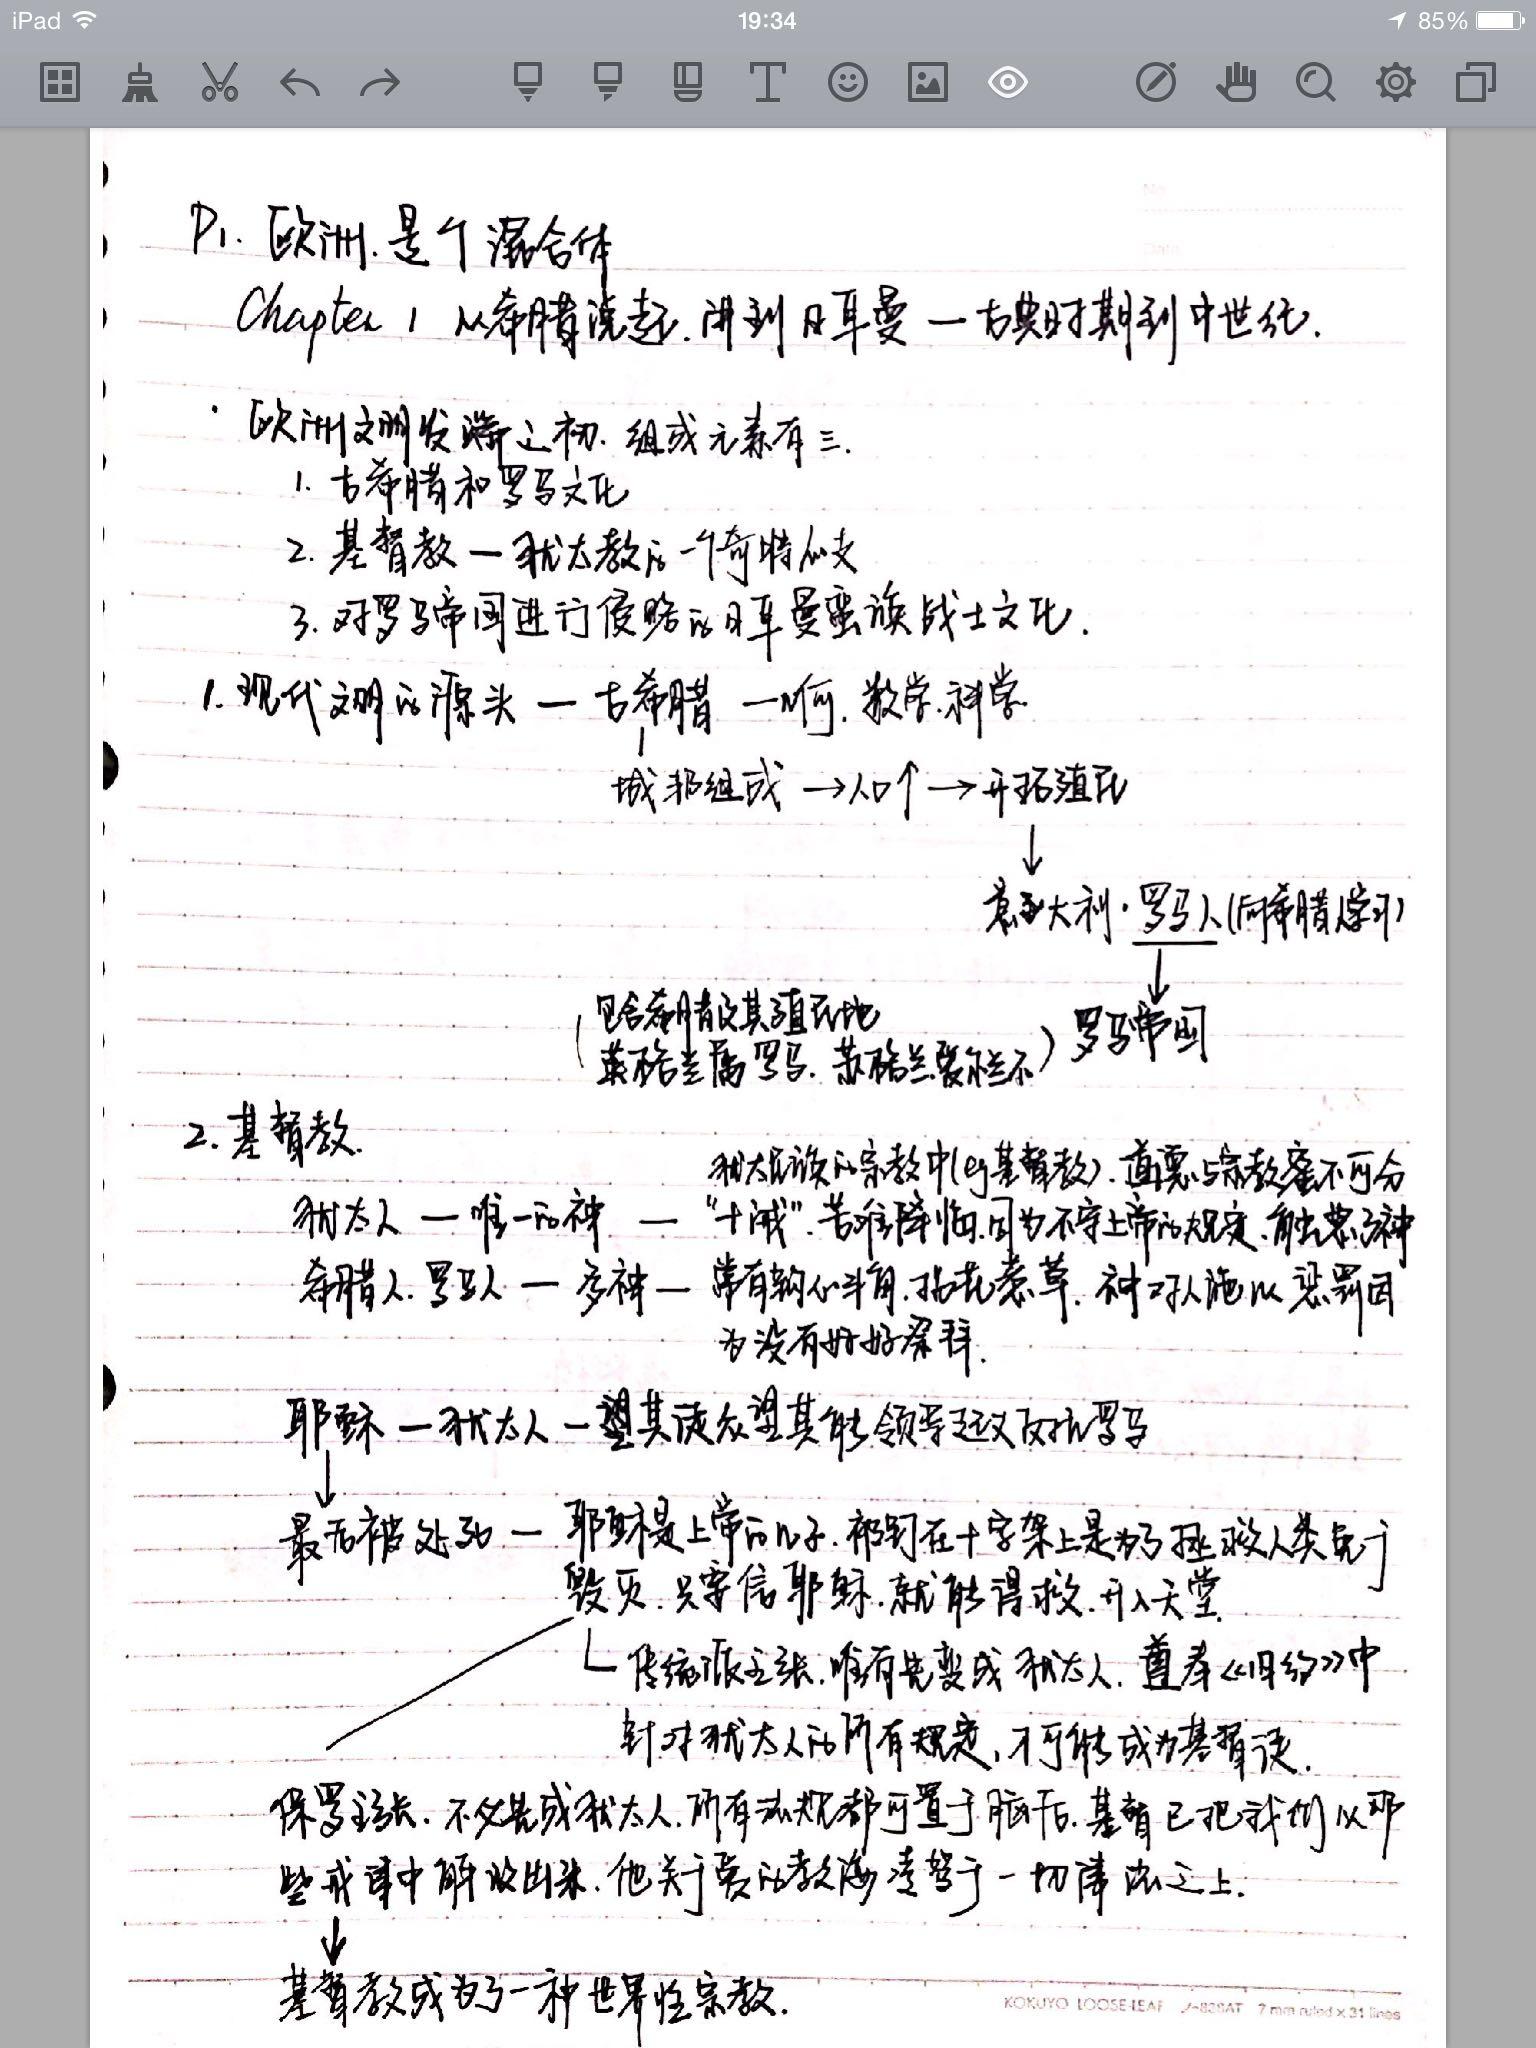 iPad
19:34
85%
P1. 欧洲.是个混合体
Chapter 1 从希腊说起.讲到日耳曼 — 古典时期到中世纪.
· 欧洲文明发端之初. 组成元素有三.
1. 古希腊和罗马文化
2. 基督教 — 犹太教的一个奇特分支
3. 对罗马帝国进行侵略的日耳曼蛮族战士文化.
1. 现代文明的源头 — 古希腊 — 几何. 数学.科学
城邦组成 → 人口↑ → 开拓殖民
↓
意大利·罗马人(向希腊人学习)
↓
(包含希腊及其殖民地
英格兰属罗马. 苏格兰爱尔兰不) 罗马帝国
2. 基督教.
犹太民族的宗教中(eg基督教). 道德与宗教密不可分
犹太人 — 唯一的神 — "十诫". 苦难降临.因为不守上帝的规定.触怒了神
希腊人.罗马人 — 多神 — 常有勾心斗角.拈花惹草. 神对人施以惩罚因
为没有好好祭拜.
耶稣 — 犹太人 — 其徒众望其能领导起义反抗罗马
↓
最后被处死 — 耶稣是上帝的儿子.被钉在十字架上是为了拯救人类免于
毁灭. 只要信耶稣.就能得救.升入天堂.
传统派主张.唯有先变成犹太人. 遵奉《旧约》中
针对犹太人的所有规定, 才可能成为基督徒.
保罗主张. 不必先成犹太人.所有法规都可置于脑后.基督已把我们从那
些戒律中解放出来.他关于爱的教诲凌驾于一切律法之上.
↓
基督教成为了一种世界性宗教.
KOKUYO LOOSE-LEAF 7 mm ruled × 31 lines